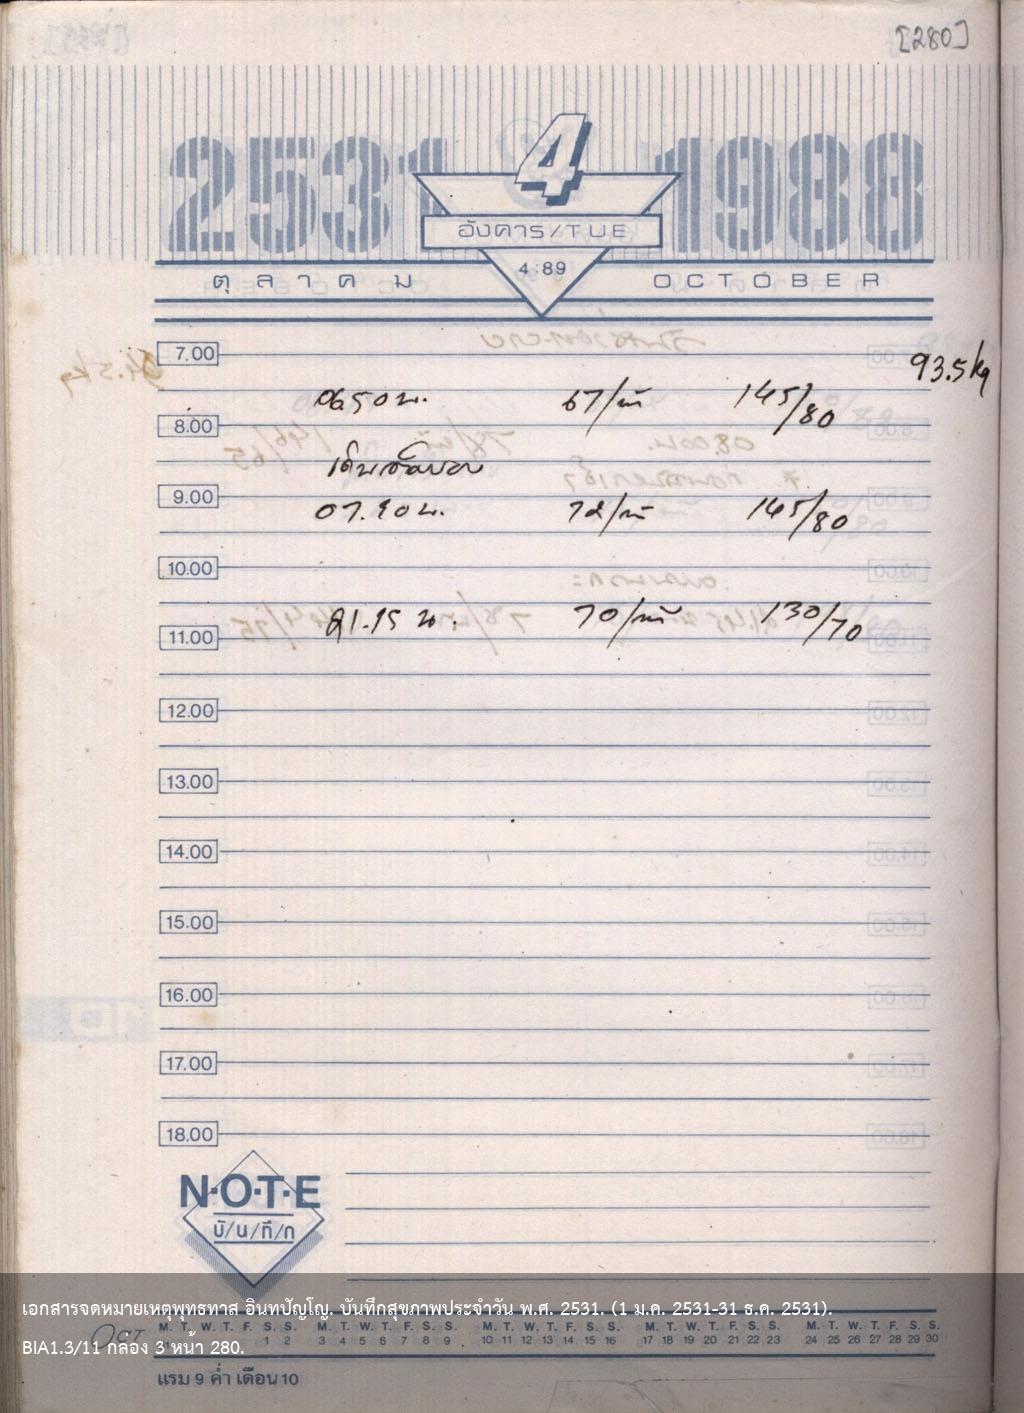 [280]
2531 4 1988
อังคาร/TUE
4:89
ตุลาคม OCTOBER
7.00
93.5 kg
06.50 น. 67/น 145/80
8.00
9.00
145/80
10.00
21.15 น. 70/น 130/70
11.00
12.00
13.00
14.00
15.00
16.00
17.00
18.00
N·O·T·E
บั/น/ทึ/ก
เอกสารจดหมายเหตุพุทธทาส อินทปัญโญ. บันทึกสุขภาพประจำวัน พ.ศ. 2531. (1 ม.ค. 2531-31 ธ.ค. 2531).
OCT M. T. W. T. F. S. S. M. T. W. T. F. S. S. M. T. W. T. F. S. S. M. T. W. T. F. S. S. M. T. W. T. F. S. S.
1 2 3 4 5 6 7 8 9 10 11 12 13 14 15 16 17 18 19 20 21 22 23 24 25 26 27 28 29 30
BIA1.3/11 กล่อง 3 หน้า 280.
แรม 9 ค่ำ เดือน 10